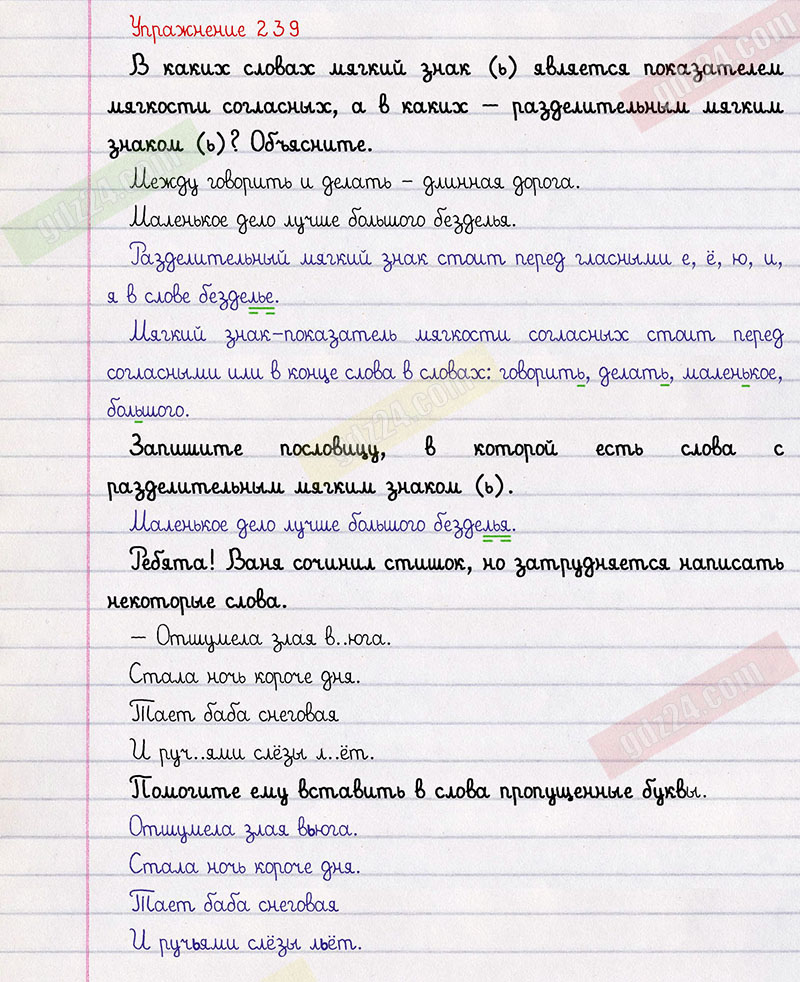 Упражнение 239
В каких словах мягкий знак (ь) является показателем
мягкости согласных, а в каких – разделительным мягким
знаком (ь)? Объясните.
Между говорить и делать – длинная дорога.
Маленькое дело лучше большого безделья.
Разделительный мягкий знак стоит перед гласными е, ё, ю, и,
я в слове безделье.
Мягкий знак-показатель мягкости согласных стоит перед
согласными или в конце слова в словах: говорить, делать, маленькое,
большого.
Запишите пословицу, в которой есть слова с
разделительным мягким знаком (ь).
Маленькое дело лучше большого безделья.
Ребята! Ваня сочинил стишок, но затрудняется написать
некоторые слова.
– Отшумела злая в..юга.
Стала ночь короче дня.
Тает баба снеговая
И руч..ями слёзы л..ёт.
Помогите ему вставить в слова пропущенные буквы.
Отшумела злая вьюга.
Стала ночь короче дня.
Тает баба снеговая
И ручьями слёзы льёт.
gdz24.com
gdz24.com
gdz24.com
gdz24.com